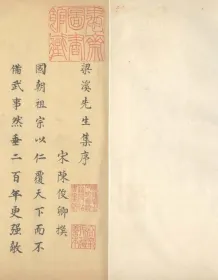 梁溪先生集序
宋陳俊卿撰
國朝祖宗以仁覆天下而不
備武事然垂二百年更强敵